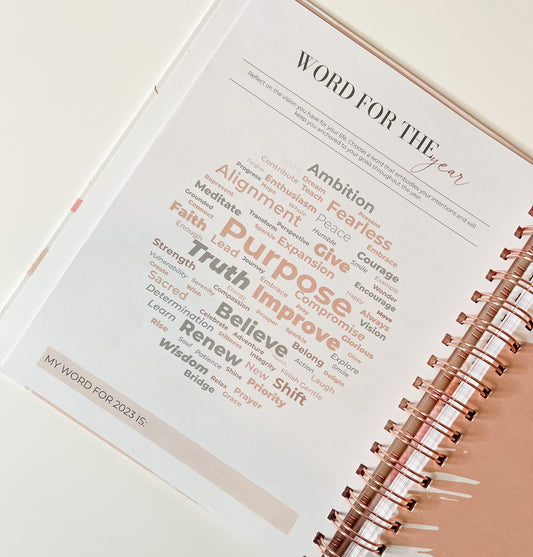 WORD FOR THE
year
Reflect on the vision you have for your life. Choose a word that embodies your intentions and will
keep you anchored to your goals throughout the year.
Ambition
Contribute Dream
Progress Enthusiasm Teach Present
Hope Whole
Represent Alignment Peace Fearless
Meditate Transform Perspective Humble Embrace
Grounded Sparkle Expansion Give Smile Courage
Connect
Faith Purpose Wonder
Enough Lead Happy Encourage
Strength Truth Journey Embrace Pray Compromise Always Move
Vulnerability Serenity Energy Improve Vision
Create Wish Compassion Prosper Sparkle Glorious
Sacred Glow
Determination Celebrate Believe Belong Explore
Learn Stillness Adventure Action Smile
Rise Soul Renew Integrity New Laugh Delight
Patience Finish Gentle
Wisdom Shine Shift
Bridge Relax Prayer Priority
Grace
MY WORD FOR 2023 IS: